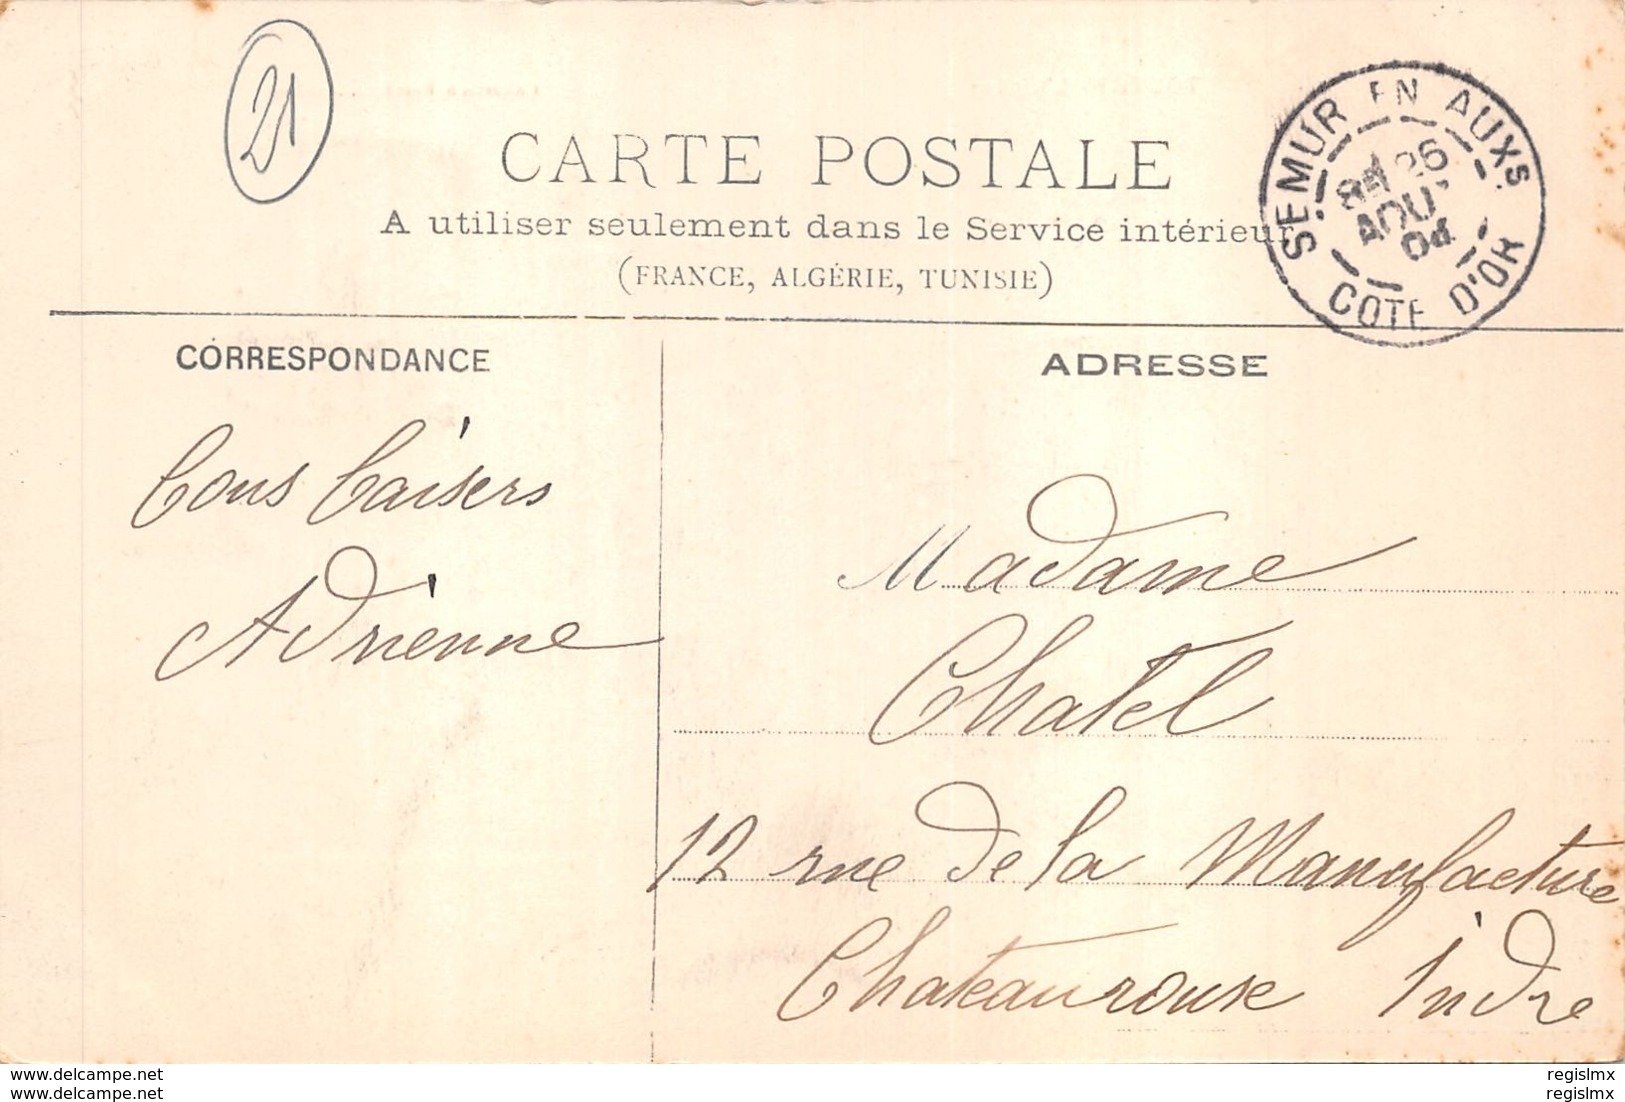 21
CARTE POSTALE
A utiliser seulement dans le Service intérieur
(FRANCE, ALGÉRIE, TUNISIE)
SEMUR EN AUXS
26
AOUT
04
COTE D'OR
CORRESPONDANCE
ADRESSE
Bons baisers
Adrienne
Madame
Chatel
12 rue de la Manufacture
Chateauroux Indre
www.delcampe.net
regislmx
www.delcampe.net
regislmx